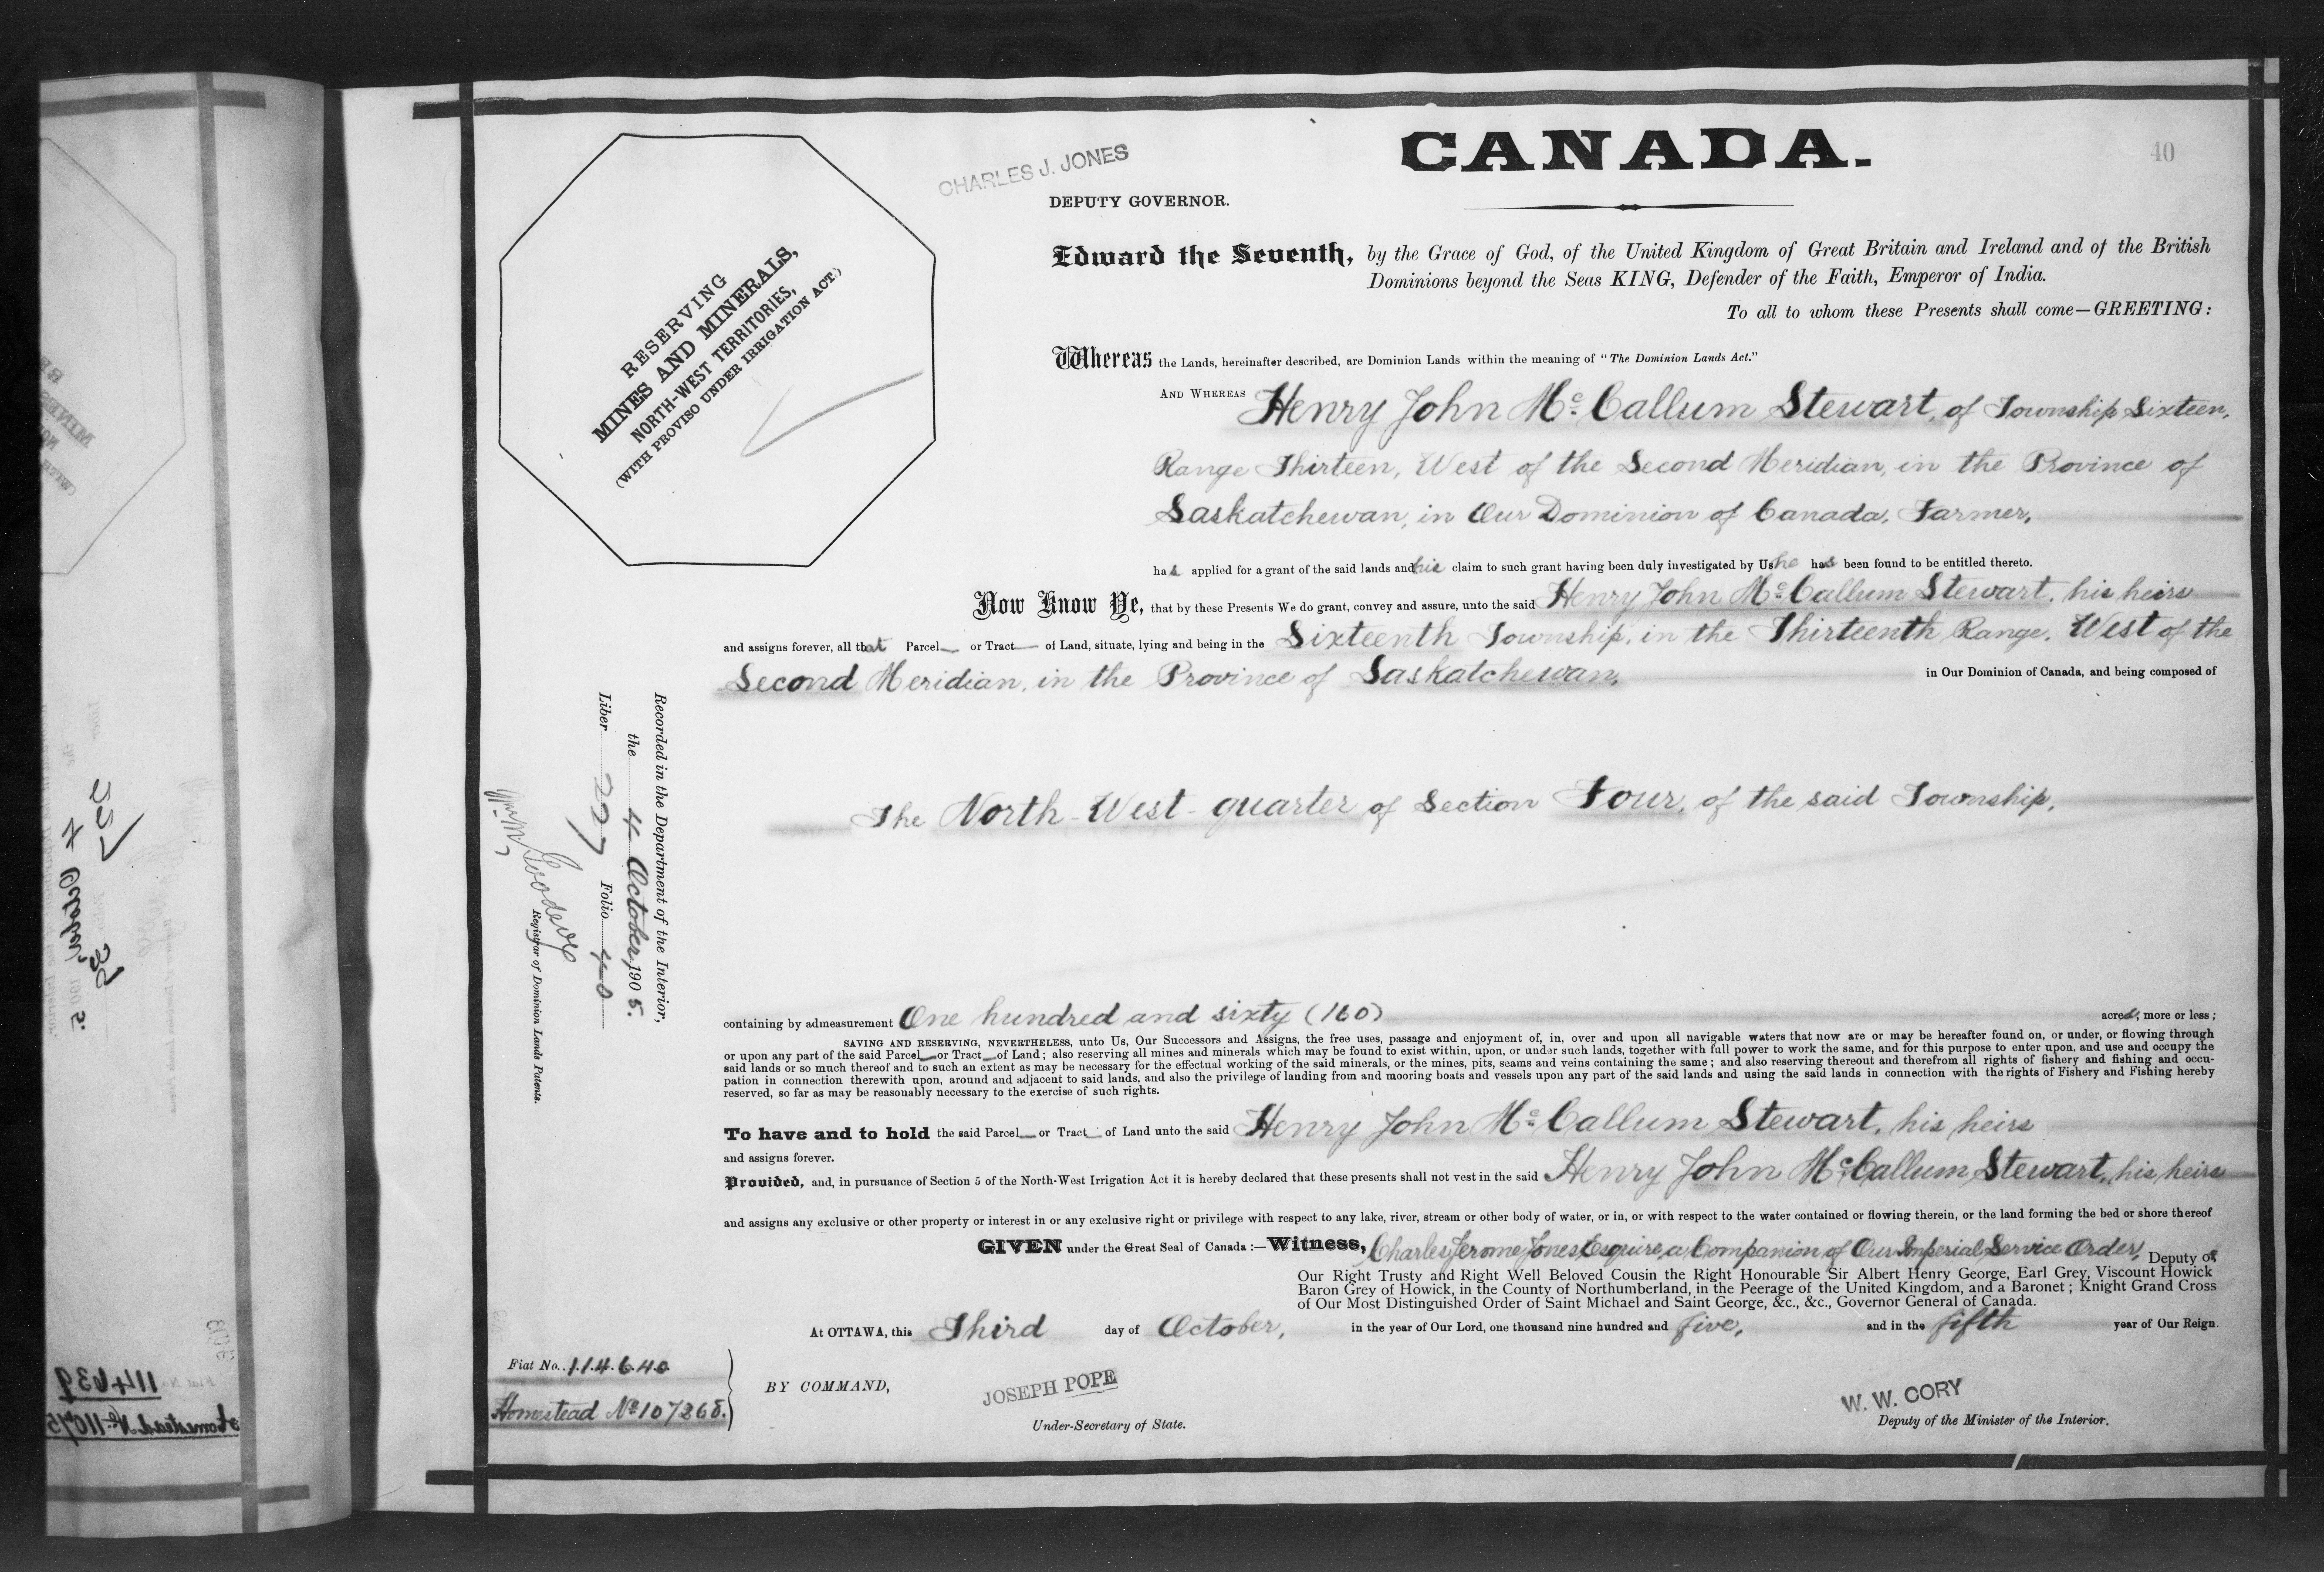 CANADA.
40
CHARLES J. JONES
DEPUTY GOVERNOR.
RESERVING
MINES AND MINERALS,
NORTH-WEST TERRITORIES,
(WITH PROVISO UNDER IRRIGATION ACT.)
Edward the Seventh, by the Grace of God, of the United Kingdom of Great Britain and Ireland and of the British
Dominions beyond the Seas KING, Defender of the Faith, Emperor of India.
To all to whom these Presents shall come—GREETING:
Whereas the Lands, hereinafter described, are Dominion Lands within the meaning of "The Dominion Lands Act."
AND WHEREAS Henry John Mc Callum Stewart, of Township Sixteen,
Range Thirteen, West of the Second Meridian, in the Province of
Saskatchewan, in Our Dominion of Canada, Farmer,
has applied for a grant of the said lands and his claim to such grant having been duly investigated by Us he has been found to be entitled thereto.
Now Know Ye, that by these Presents We do grant, convey and assure, unto the said Henry John Mc Callum Stewart, his heirs
and assigns forever, all that Parcel or Tract of Land, situate, lying and being in the Sixteenth Township, in the Thirteenth Range, West of the
Second Meridian, in the Province of Saskatchewan, in Our Dominion of Canada, and being composed of
The North-West-quarter of Section Four, of the said Township,
containing by admeasurement One hundred and sixty (160) acres, more or less;
SAVING AND RESERVING, NEVERTHELESS, unto Us, Our Successors and Assigns, the free uses, passage and enjoyment of, in, over and upon all navigable waters that now are or may be hereafter found on, or under, or flowing through
or upon any part of the said Parcel or Tract of Land; also reserving all mines and minerals which may be found to exist within, upon, or under such lands, together with full power to work the same, and for this purpose to enter upon, and use and occupy the
said lands or so much thereof and to such an extent as may be necessary for the effectual working of the said minerals, or the mines, pits, seams and veins containing the same; and also reserving thereout and therefrom all rights of fishery and fishing and occu-
pation in connection therewith upon, around and adjacent to said lands, and also the privilege of landing from and mooring boats and vessels upon any part of the said lands and using the said lands in connection with the rights of Fishery and Fishing hereby
reserved, so far as may be reasonably necessary to the exercise of such rights.
To have and to hold the said Parcel or Tract of Land unto the said Henry John Mc Callum Stewart, his heirs
and assigns forever.
Provided, and, in pursuance of Section 5 of the North-West Irrigation Act it is hereby declared that these presents shall not vest in the said Henry John Mc Callum Stewart, his heirs
and assigns any exclusive or other property or interest in or any exclusive right or privilege with respect to any lake, river, stream or other body of water, or in, or with respect to the water contained or flowing therein, or the land forming the bed or shore thereof
GIVEN under the Great Seal of Canada:—Witness, Charles Jerome Jones Esquire, a Companion of Our Imperial Service Order, Deputy of
Our Right Trusty and Right Well Beloved Cousin the Right Honourable Sir Albert Henry George, Earl Grey, Viscount Howick
Baron Grey of Howick, in the County of Northumberland, in the Peerage of the United Kingdom, and a Baronet; Knight Grand Cross
of Our Most Distinguished Order of Saint Michael and Saint George, &c., &c., Governor General of Canada.
At OTTAWA, this Third day of October, in the year of Our Lord, one thousand nine hundred and five, and in the fifth year of Our Reign.
Fiat No. 114640
Homestead No 107268.
BY COMMAND,
JOSEPH POPE
Under-Secretary of State.
W. W. CORY
Deputy of the Minister of the Interior.
Recorded in the Department of the Interior,
the 4 October, 1905.
Liber 227 Folio 40
Registrar of Dominion Lands Patents.
114639